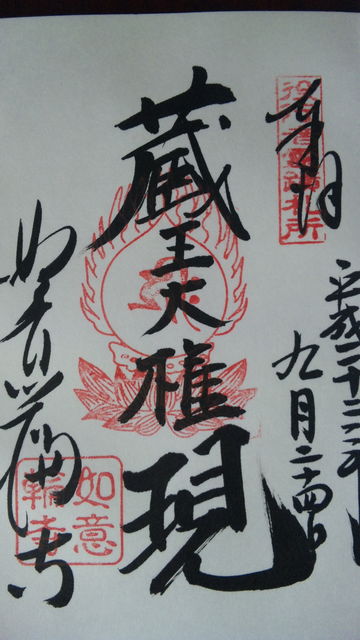 奉拝
役行者霊蹟札所
平成二十
九月二十四日
蔵王大権現
如意輪寺
如意
輪寺